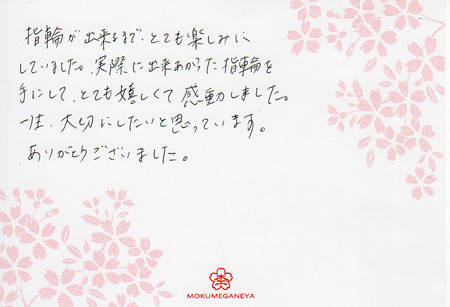 指輪が出来るまで、とても楽しみに
していました。実際に出来あがった指輪を
手にして、とても嬉しくて感動しました。
一生、大切にしたいと思っています。
ありがとうございました。
MOKUMEGANEYA